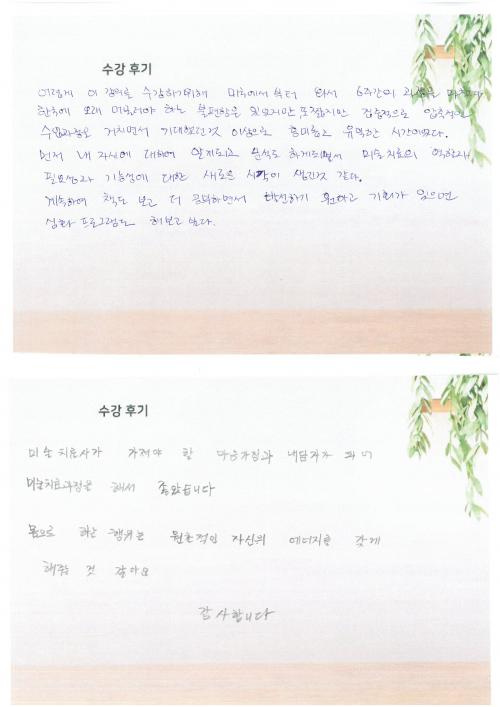 수강 후기
어렵게 이 강의를 수강하기위해 미국에서 부터 와서 6주간의 과정을 마쳤다
한국에 오래 머물러야 하는 불편함은 있었지만 또 짧지만 집중적으로 압축적인
수업과정을 거치면서 기대했던것 이상으로 흥미롭고 유익한 시간이었다.
먼저 내 자신에 대하여 알게되고 분석도 하게되면서 미술치료의 역할과
필요성과 가능성에 대한 새로운 시각이 생긴것 같다.
계속하여 책도 보고 더 공부하면서 발전하기 원하고 기회가 있으면
심화 프로그램도 해보고 싶다.
수강 후기
미술 치료사가 가져야 할 마음가짐과 내담자가 되어
미술치료과정을 해서 좋았습니다
몸으로 하는 행위는 원초적인 자신의 에너지를 갖게
해주는 것 같아요
감사합니다